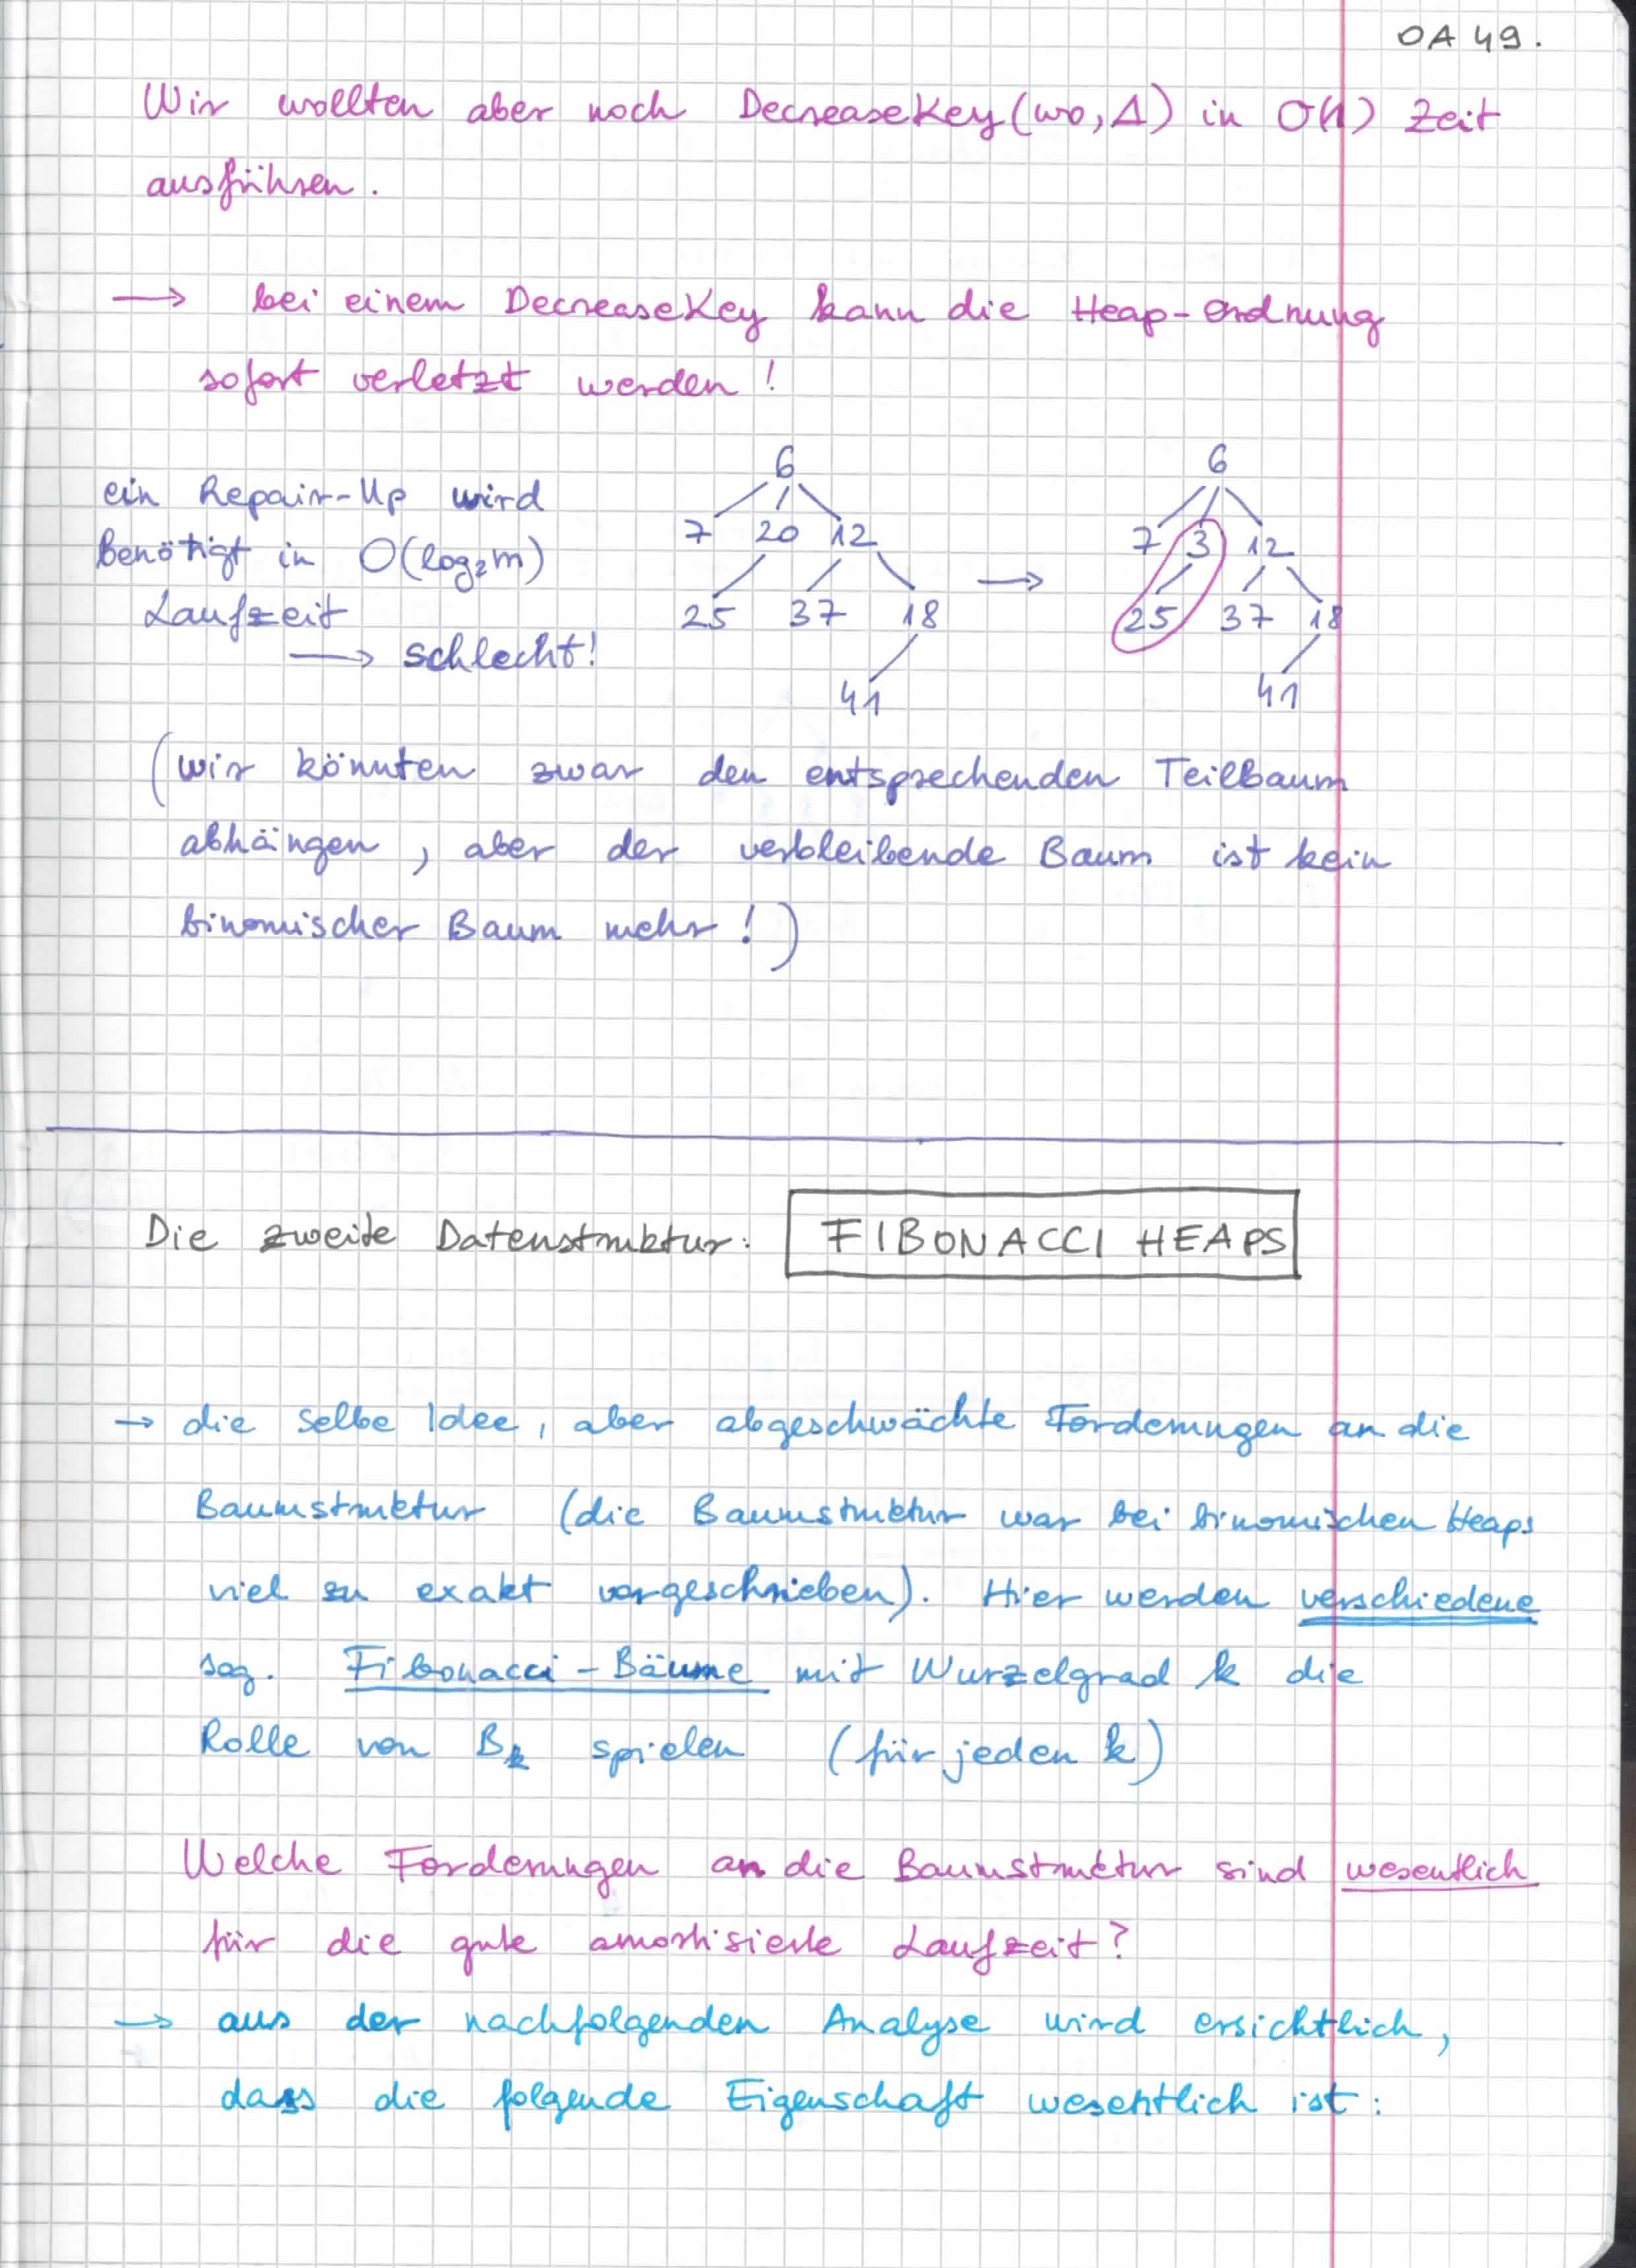 OA 49.
Wir wollten aber noch DecreaseKey(wo, Δ) in O(1) Zeit
ausführen.
→ bei einem DecreaseKey kann die Heap-Ordnung
sofort verletzt werden!
ein Repair-Up wird
Benötigt in O(log₂m)
Laufzeit
→ schlecht!
6
7 20 12
25 37 18
41
→
6
7 3 12
25 37 18
41
(wir könnten zwar den entsprechenden Teilbaum
abhängen, aber der verbleibende Baum ist kein
binomischer Baum mehr!)
Die zweite Datenstruktur: FIBONACCI HEAPS
→ die selbe Idee, aber abgeschwächte Forderungen an die
Baumstruktur (die Baumstruktur war bei binomischen Heaps
viel zu exakt vorgeschrieben). Hier werden verschiedene
sog. Fibonacci-Bäume mit Wurzelgrad k die
Rolle von Bₖ spielen (für jeden k)
Welche Forderungen an die Baumstruktur sind wesentlich
für die gute amortisierte Laufzeit?
→ aus der nachfolgenden Analyse wird ersichtlich,
dass die folgende Eigenschaft wesentlich ist: